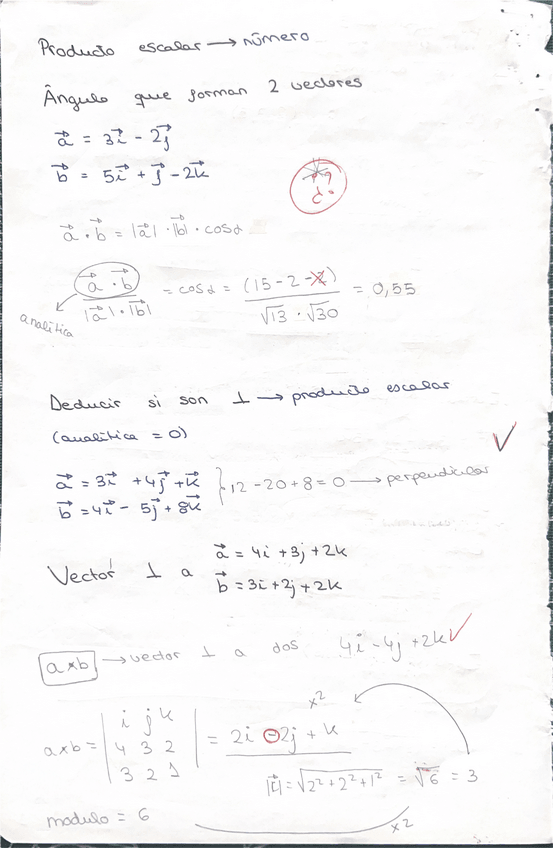 Producto escalar → número
Ângulo que forman 2 vectores
a⃗ = 3i⃗ - 2j⃗
b⃗ = 5i⃗ + j⃗ - 2k⃗
a⃗ · b⃗ = |a⃗| · |b⃗| · cosα
(a⃗ · b⃗) / (|a⃗| · |b⃗|) = cosα = (15 - 2 - 2) / (√13 · √30) = 0,55
analítica
Deducir si son ⊥ → producto escalar
(analítica = 0)
a⃗ = 3i⃗ + 4j⃗ + k⃗
b⃗ = 4i⃗ - 5j⃗ + 8k⃗ } 12 - 20 + 8 = 0 → perpendicular
Vector ⊥ a
a⃗ = 4i + 3j + 2k
b⃗ = 3i + 2j + 2k
a×b → vector ⊥ a dos 4i - 4j + 2k
x2
a×b = | i j k | = 2i - 2j + k
4 3 2
3 2 1
= √2² + 2² + 1² = √6 = 3
modulo = 6
x2